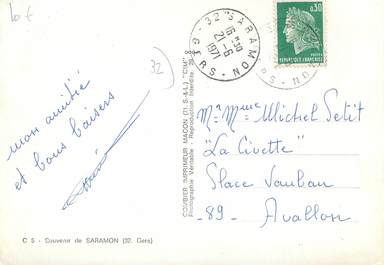 bof
32
mon amitié
et bons baisers
32 SARAMON
GERS
16 H 30
21-6
1971
0,30
REPUBLIQUE FRANCAISE
COMBIER IMPRIMEUR MACON (71. S.-&-L.) "CIM"
Photographie Véritable - Reproduction Interdite.
Mr Mme Michel Setit
"La Civette"
Place Vauban
-89- Avallon
C 5 - Souvenir de SARAMON (32. Gers)